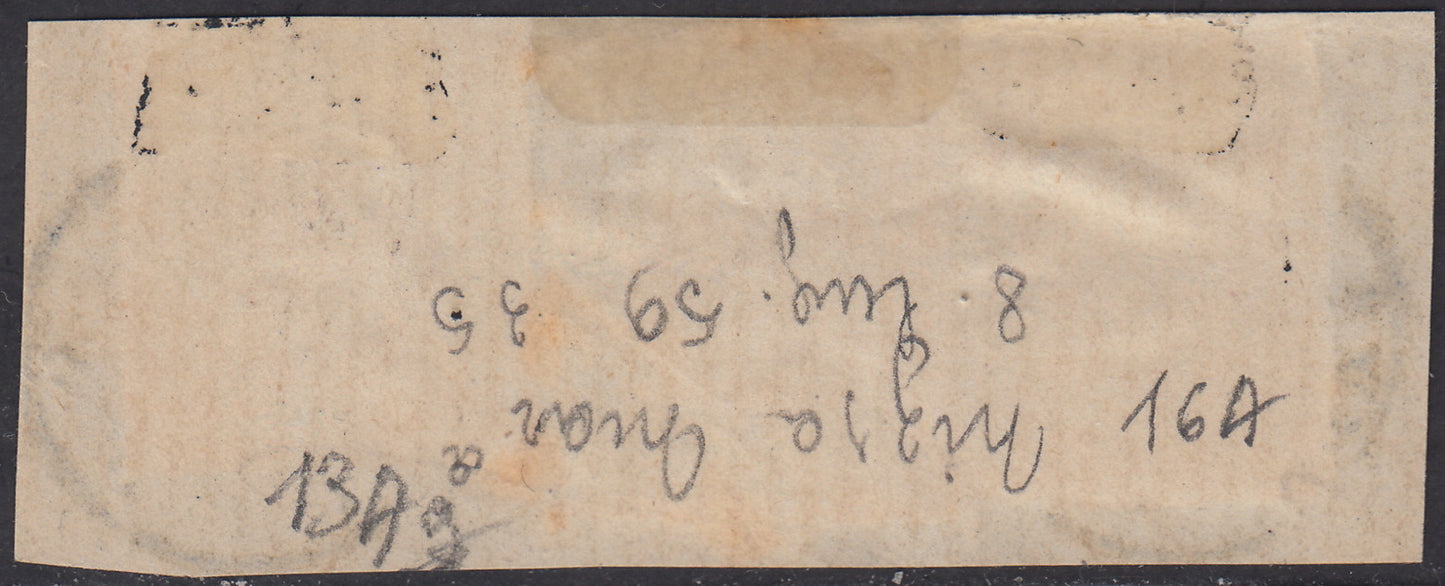 Nizza Mar.
8. Lug. 59 35
16A
13A